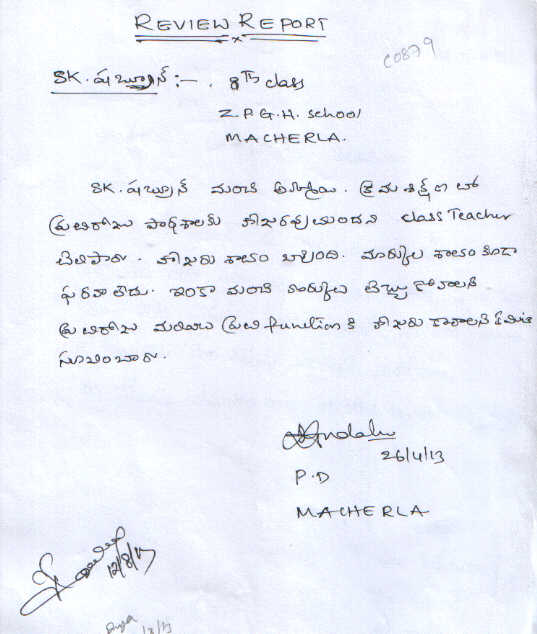 REVIEW REPORT
C0879
SK. షబ్రూన్ :- . 8TH class
Z.P.G.H. School
MACHERLA.
SK. షబ్రూన్ మంచి అమ్మాయి. క్రమశిక్షణ తో
ప్రతిరోజు పాఠశాలకు హాజరవుతుందని class Teacher
తెలిపారు. హాజరు శాతం బాగుంది. మార్కుల శాతం కూడా
ఫరవాలేదు. ఇంకా మంచి మార్కులు తెచ్చుకోవాలని
ప్రతిరోజు మరియు ప్రతి function కి హాజరు కావాలని
సూచించారు.
26/4/13
P.D
MACHERLA